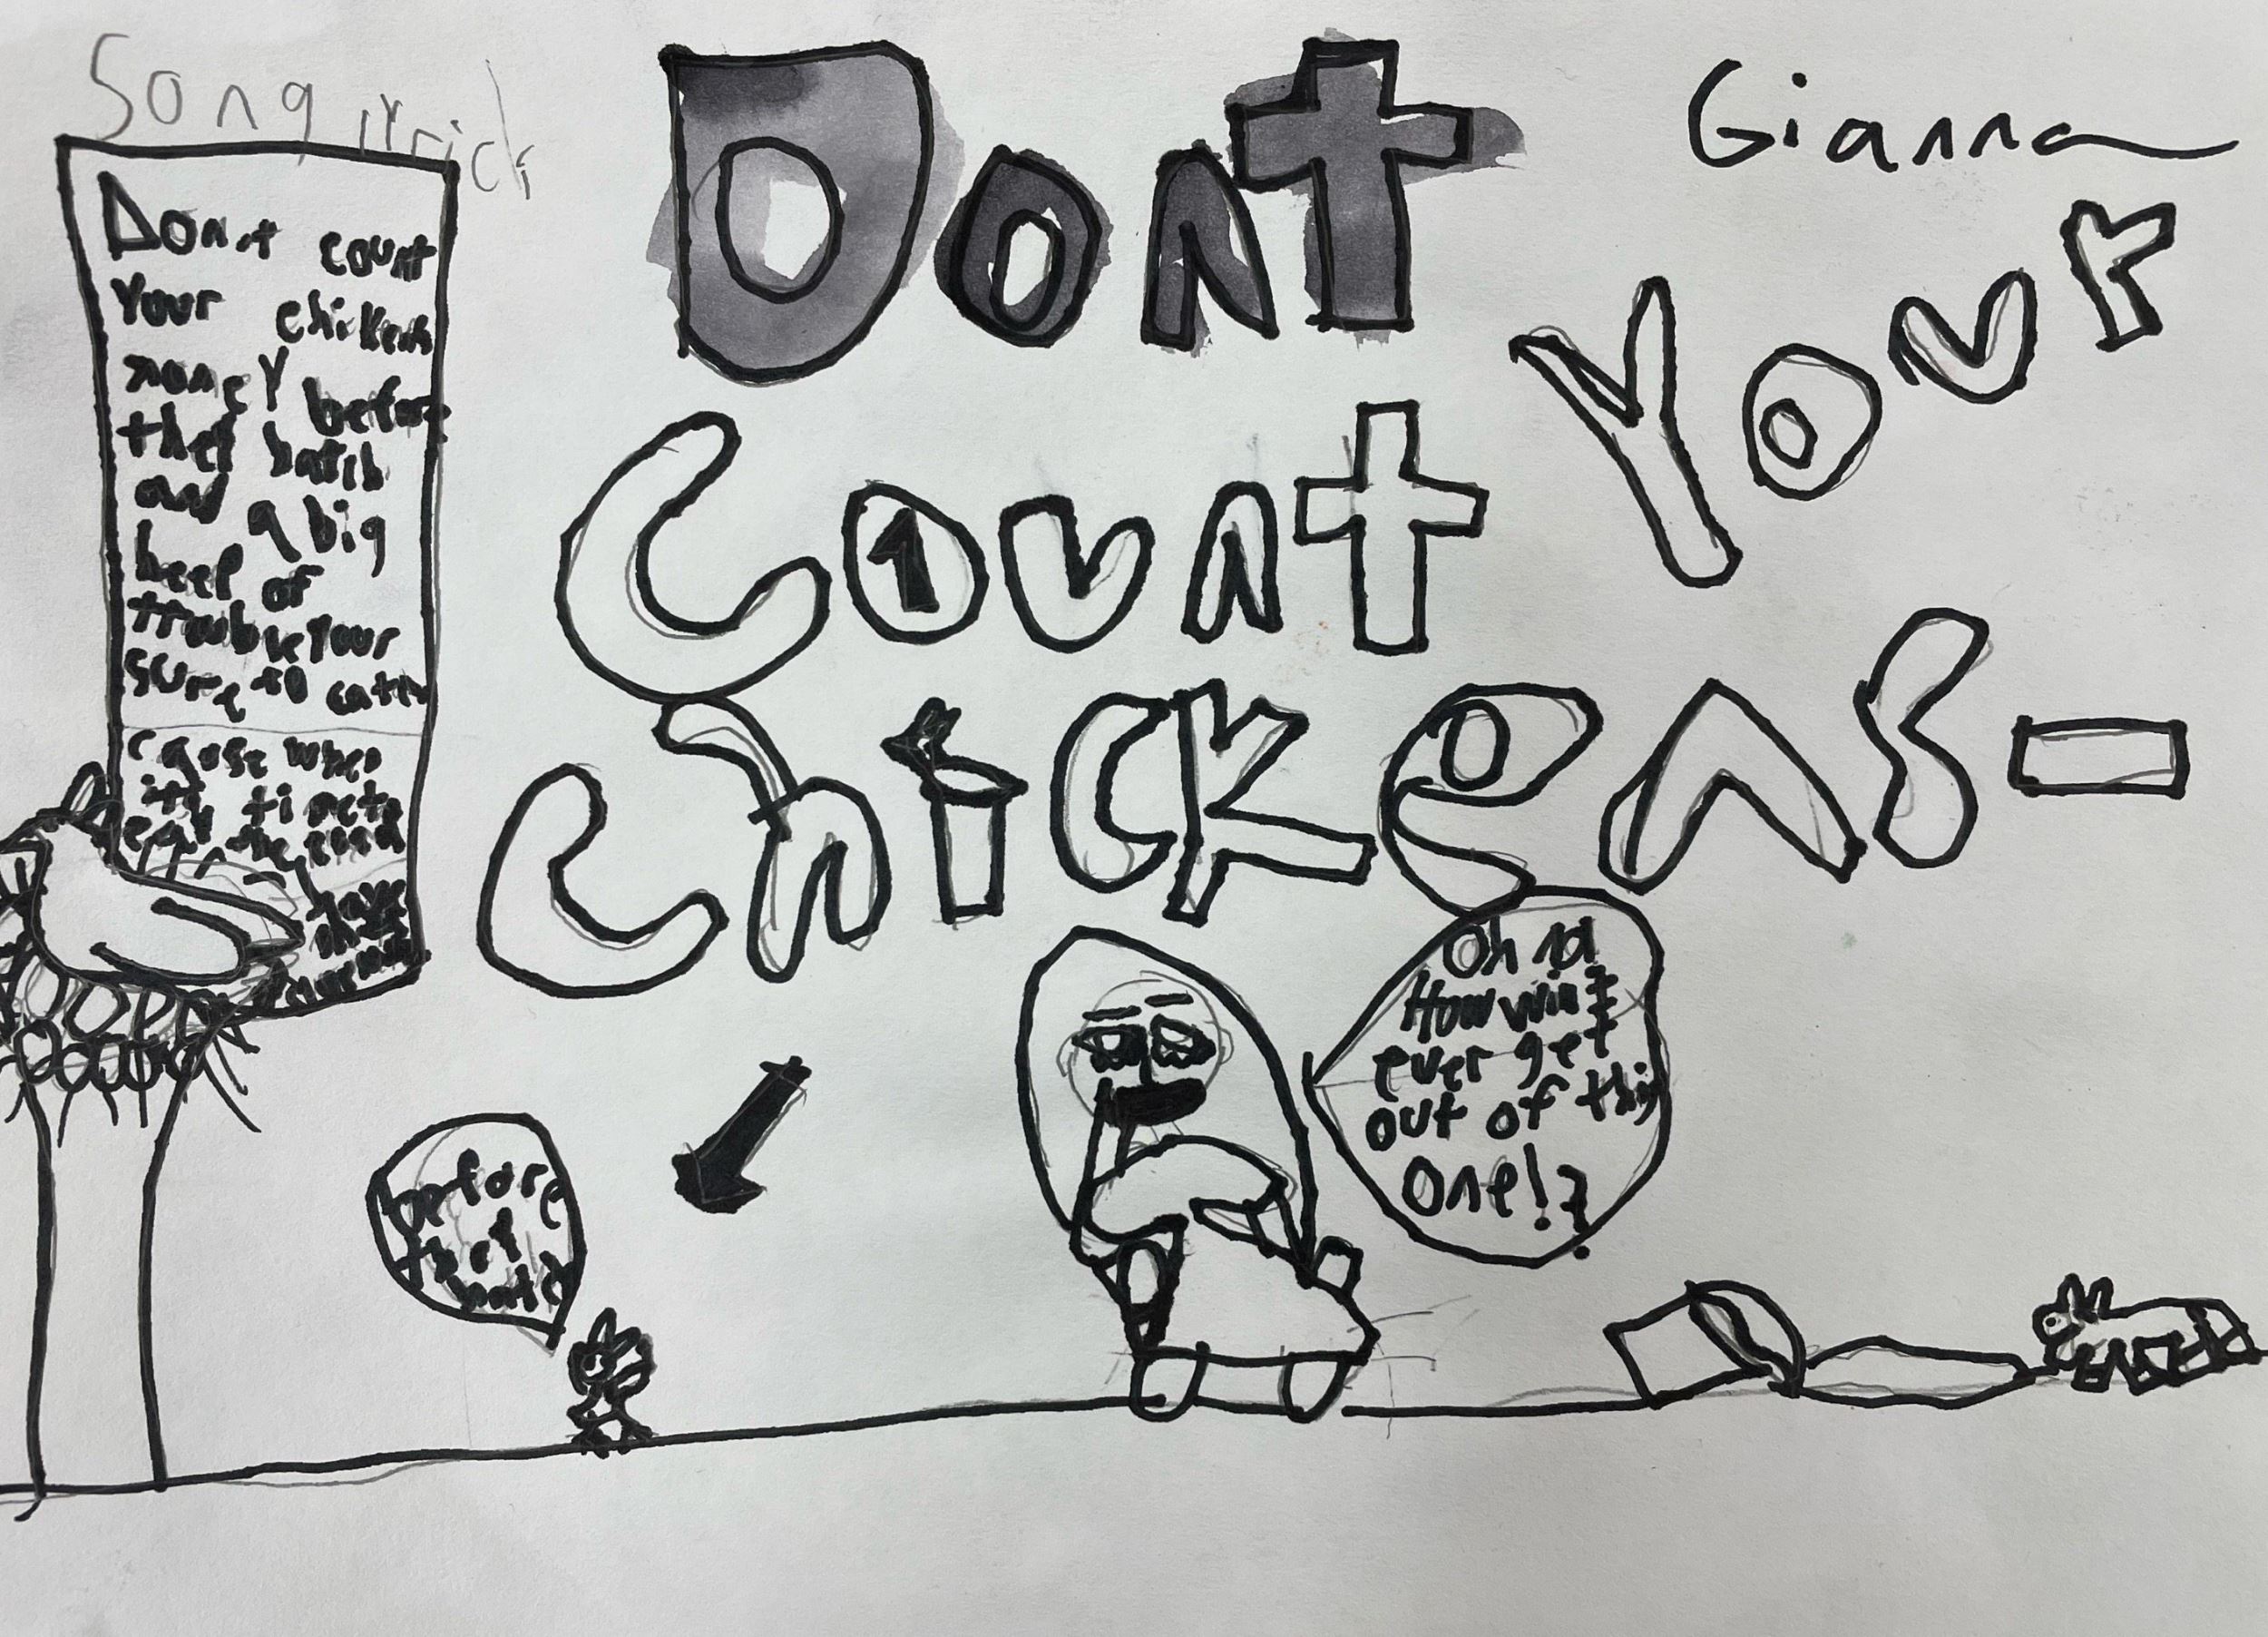 Song lyrics
Gianna
Dont
Count
Your
Chickens-
Don't count
Your chickens
honey before
they hatch
and a big
heep of
trouble your
sure to catch
cause when
its time to
eat the
have
Oh no
How will I
ever get
out of this
one!?
before
they
hatch